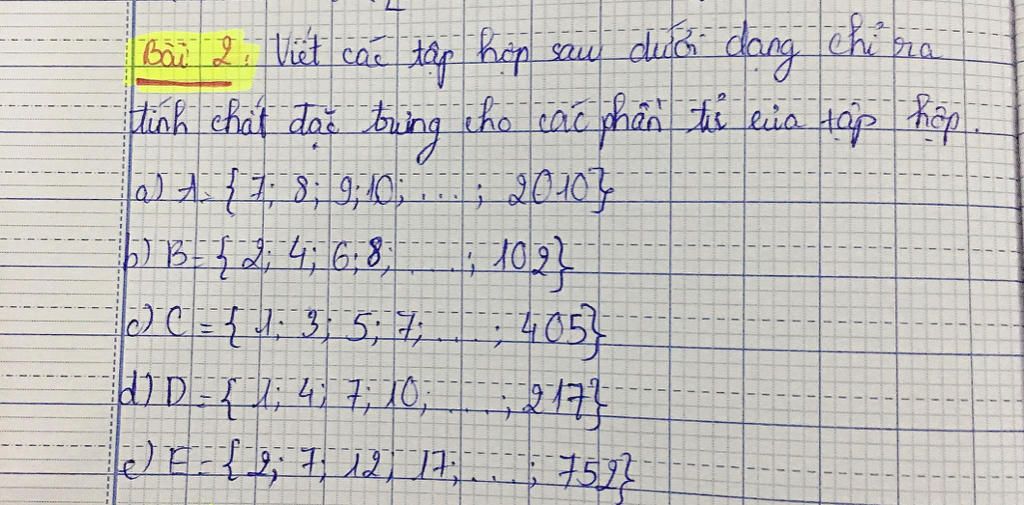 Bài 2: Viết các tập hợp sau dưới dạng chỉ ra
tính chất đặc trưng cho các phần tử của tập hợp.
a) A = {7; 8; 9; 10; ...; 2010}
b) B = {2; 4; 6; 8; ....; 102}
c) C = {1; 3; 5; 7; ....; 405}
d) D = {1; 4; 7; 10; ....; 217}
e) E = {2; 7; 12; 17; ...; 752}